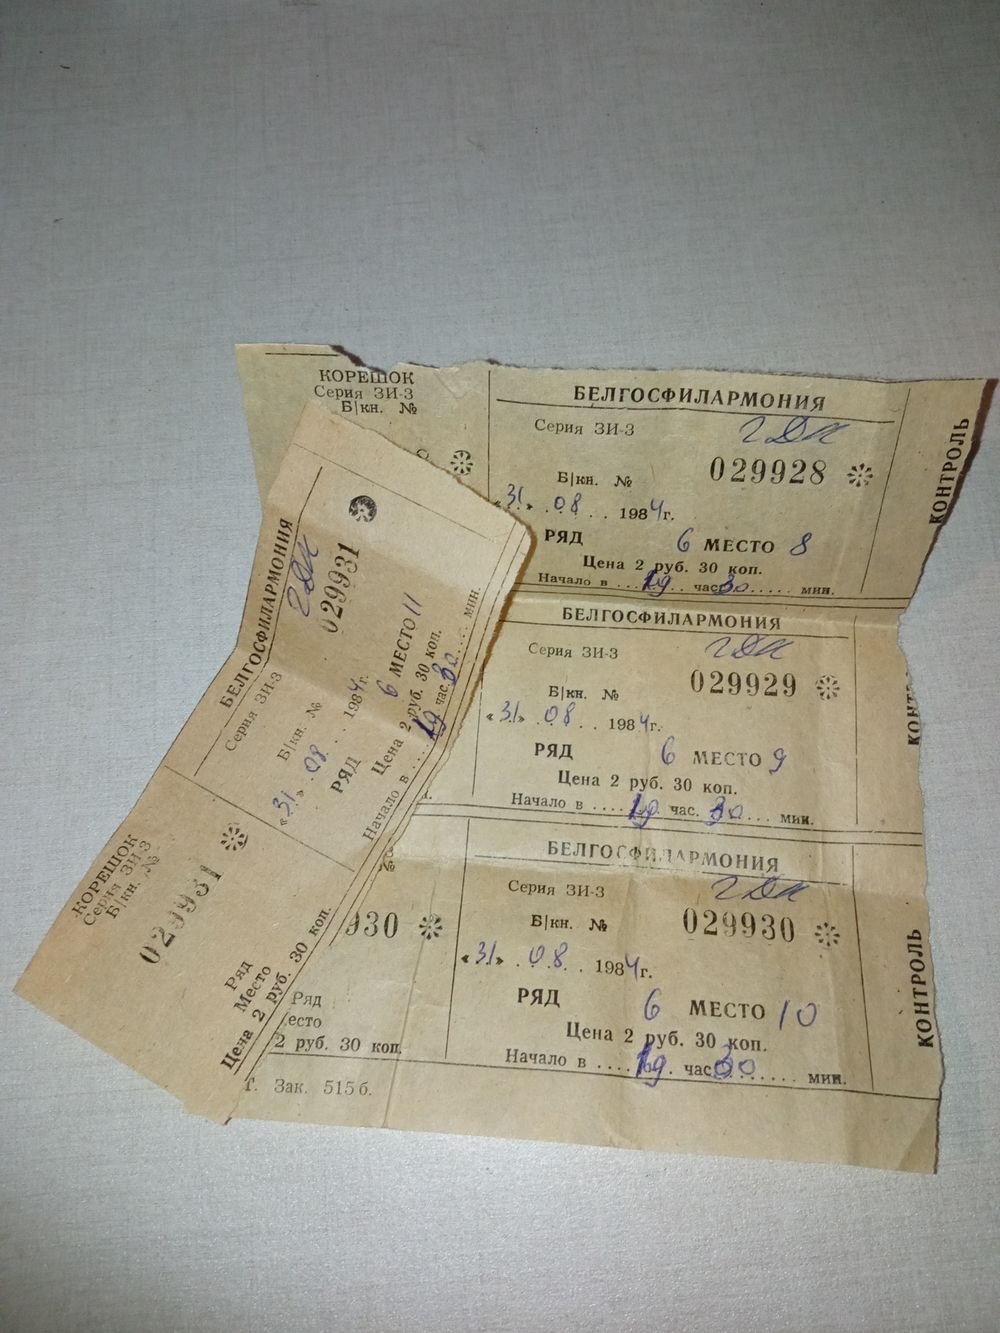 КОРЕШОК
Серия ЗИ-3
Б|кн. №
БЕЛГОСФИЛАРМОНИЯ
Серия ЗИ-3 ГДК
Б|кн. № 029928
«31» 08 1984г.
РЯД 6 МЕСТО 8
Цена 2 руб. 30 коп.
Начало в ....19 час.30..... мин.
КОНТРОЛЬ
БЕЛГОСФИЛАРМОНИЯ
Серия ЗИ-3 ГДК
Б|кн. № 029929
«31» 08 1984г.
РЯД 6 МЕСТО 9
Цена 2 руб. 30 коп.
Начало в ....19 час. 30.... мин.
КОНТ
930
Ряд
есто
2 руб. 30 коп.
Т. Зак. 515б.
БЕЛГОСФИЛАРМОНИЯ
Серия ЗИ-3 ГДК
Б|кн. № 029930
«31» 08 1984г.
РЯД 6 МЕСТО 10
Цена 2 руб. 30 коп.
Начало в ....19 час.30...... мин.
КОНТРОЛЬ
БЕЛГОСФИЛАРМОНИЯ
Серия ЗИ-3 ГДК
Б|кн. № 029931
«31» 08 1984г.
РЯД 6 МЕСТО 11
Цена 2 руб. 30 коп.
Начало в ....19 час.30..... мин.
КОРЕШОК
Серия ЗИ-3
Б|кн. №
029931
Ряд
Место
Цена 2 руб. 30 коп.
№